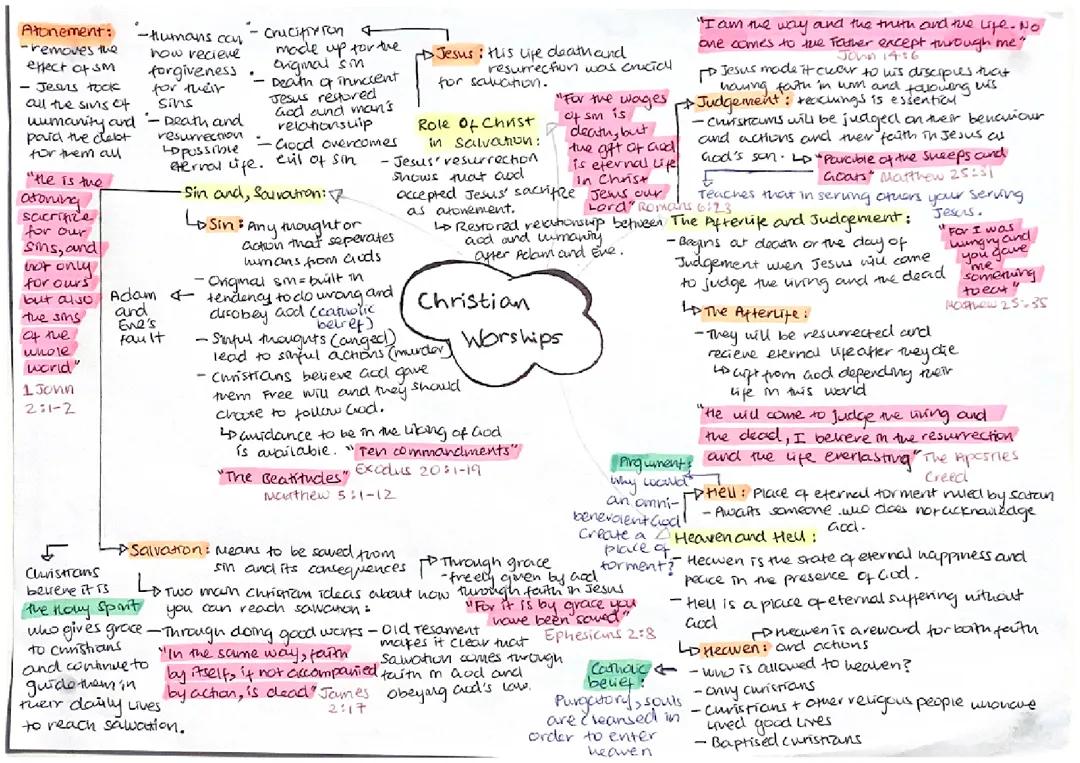 Atonement:
- removes the
effect of sin
- Jesus took
all the sins of
humanity and
paid the debt
for them all
- Humans can
now recieve
forgiveness
for their
sins
- Death and
resurrection
possible
eternal life.
- Crucifixion
made up for the
original sin
- Death of innocent
Jesus restored
God and man's
relationship
- Good overcomes
evil of sin
Jesus: this life death and
resurrection was crucial
for salvation.
Role Of Christ
in Salvation:
- Jesus' resurrection
shows that God
accepted Jesus' sacrifice
as atonement.
Restored relationship between
God and humanity
after Adam and Eve.
"For the wages
of sin is
death, but
the gift of God
is eternal life
in Christ
Jesus our
Lord" Romans 6:23
"I am the way and the truth and the life. No
one comes to the Father except through me"
John 14:6
Jesus made it clear to his disciples that
having faith in him and following his
Judgement: teachings is essential
- Christians will be judged on their behaviour
and actions and their faith in Jesus as
God's son.
"Parable of the Sheeps and
Goats" Matthew 25:31
Teaches that in serving others your serving
Jesus.
The Afterlife and Judgement:
- Begins at death or the day of
Judgement when Jesus will come
to judge the living and the dead
"For I was
hungry and
you gave
me
something
to eat"
Matthew 25:35
The Afterlife:
- They will be resurrected and
recieve eternal life after they die
Gift from God depending their
life in this world
"He will come to judge the living and
the dead, I believe in the resurrection
and the life everlasting" The Apostles
Creed
Sin and, Salvation:
Sin: Any thought or
action that seperates
humans from Gods
- Original sin = built in
tendency to do wrong and
disobey God (catholic
belief)
Adam
and
Eve's
fault
- Sinful thoughts (anged)
lead to sinful actions (murder)
- Christians believe God gave
them Free will and they should
choose to follow God.
Guidance to be in the liking of God
is available. "Ten commandments"
Exodus 20:1-19
"The Beatitudes"
Matthew 5:1-12
"He is the
atoning
sacrifice
for our
sins, and
not only
for ours
but also
the sins
of the
whole
world"
1 John
2:1-2
Christian
Worships
Argument:
why would
an omni-
benevolent God
create a
place of
torment?
Hell: Place of eternal torment ruled by Satan
- Awaits someone who does not acknowledge
God.
Heaven and Hell:
- Heaven is the state of eternal happiness and
peace in the presence of God.
- Hell is a place of eternal suffering without
God
Heaven is a reward for both faith
Heaven: and actions
- who is allowed to heaven?
- only christians
- Christians + other religious people who have
lived good lives
- Baptised christians
Catholic
belief:
Purgatory, souls
are cleansed in
order to enter
heaven
Salvation: Means to be saved from
sin and its consequences
Two main Christian ideas about how
you can reach salvation:
Through grace
- freely given by God
through faith in Jesus
"For it is by grace you
have been saved"
Ephesians 2:8
- Through doing good works
"In the same way, faith
by itself, if not accompanied
by action, is dead" James
2:17
- Old Tesament
makes it clear that
salvation comes through
faith in God and
obeying God's law.
Christians
believe it is
the Holy Spirit
who gives grace
to Christians
and continue to
guide them in
their daily lives
to reach salvation.